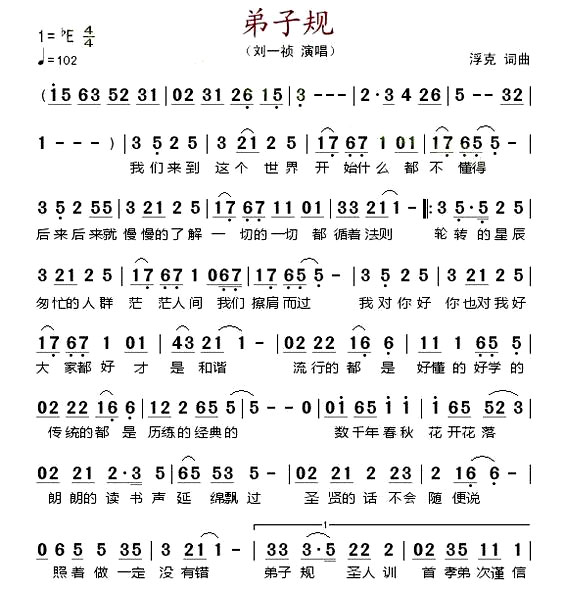 弟子规
1=♭E 4/4
（刘一祯 演唱）
♩=102
浮克 词曲
( i5 63 52 31 | 02 31 26 15 | 3 - - - | 2 · 3 4 26 | 5 - - 32 |
1 - - - ) | 3 5 2 5 | 3 21 2 5 | 17 67 1 01 | 17 65 5 - |
我们来到 这个 世界 开 始什么 都 不 懂得
3 5 2 55 | 3 21 2 5 | 17 67 11 01 | 33 21 1 - |: 3 5·5 2 5 |
后来后来就 慢慢的了解 一 切的一切 都 循着法则 轮 转的星辰
3 21 2 5 | 17 67 1 067 | 17 65 5 - | 3 5 2 5 | 3 21 2 5 |
匆忙的人群 茫 茫人间 我们擦肩而过 我对你好 你也对我好
17 67 1 01 | 43 21 1 - | 02 22 16 6 | 11 1 67 5 |
大 家都好 才 是 和谐 流行的 都 是 好懂的好学的
02 22 16 6 | 12 2 65 5 | 5 - - 0 | 0i 65 i i | i 65 52 3 |
传统的都 是 历练的经典的 数千年春秋 花开花 落
02 21 2·3 5 | 65 53 5 - | 02 21 5 35 | 2 16 6 - |
朗朗的 读 书 声 延 绵飘 过 圣 贤的话 不会 随 便说
1
06 5 5 35 | 3 21 1 - | 33 3·5 22 1 | 02 35 11 1 |
照着 做 一定 没有错 弟子 规 圣人训 首 孝弟次谨信